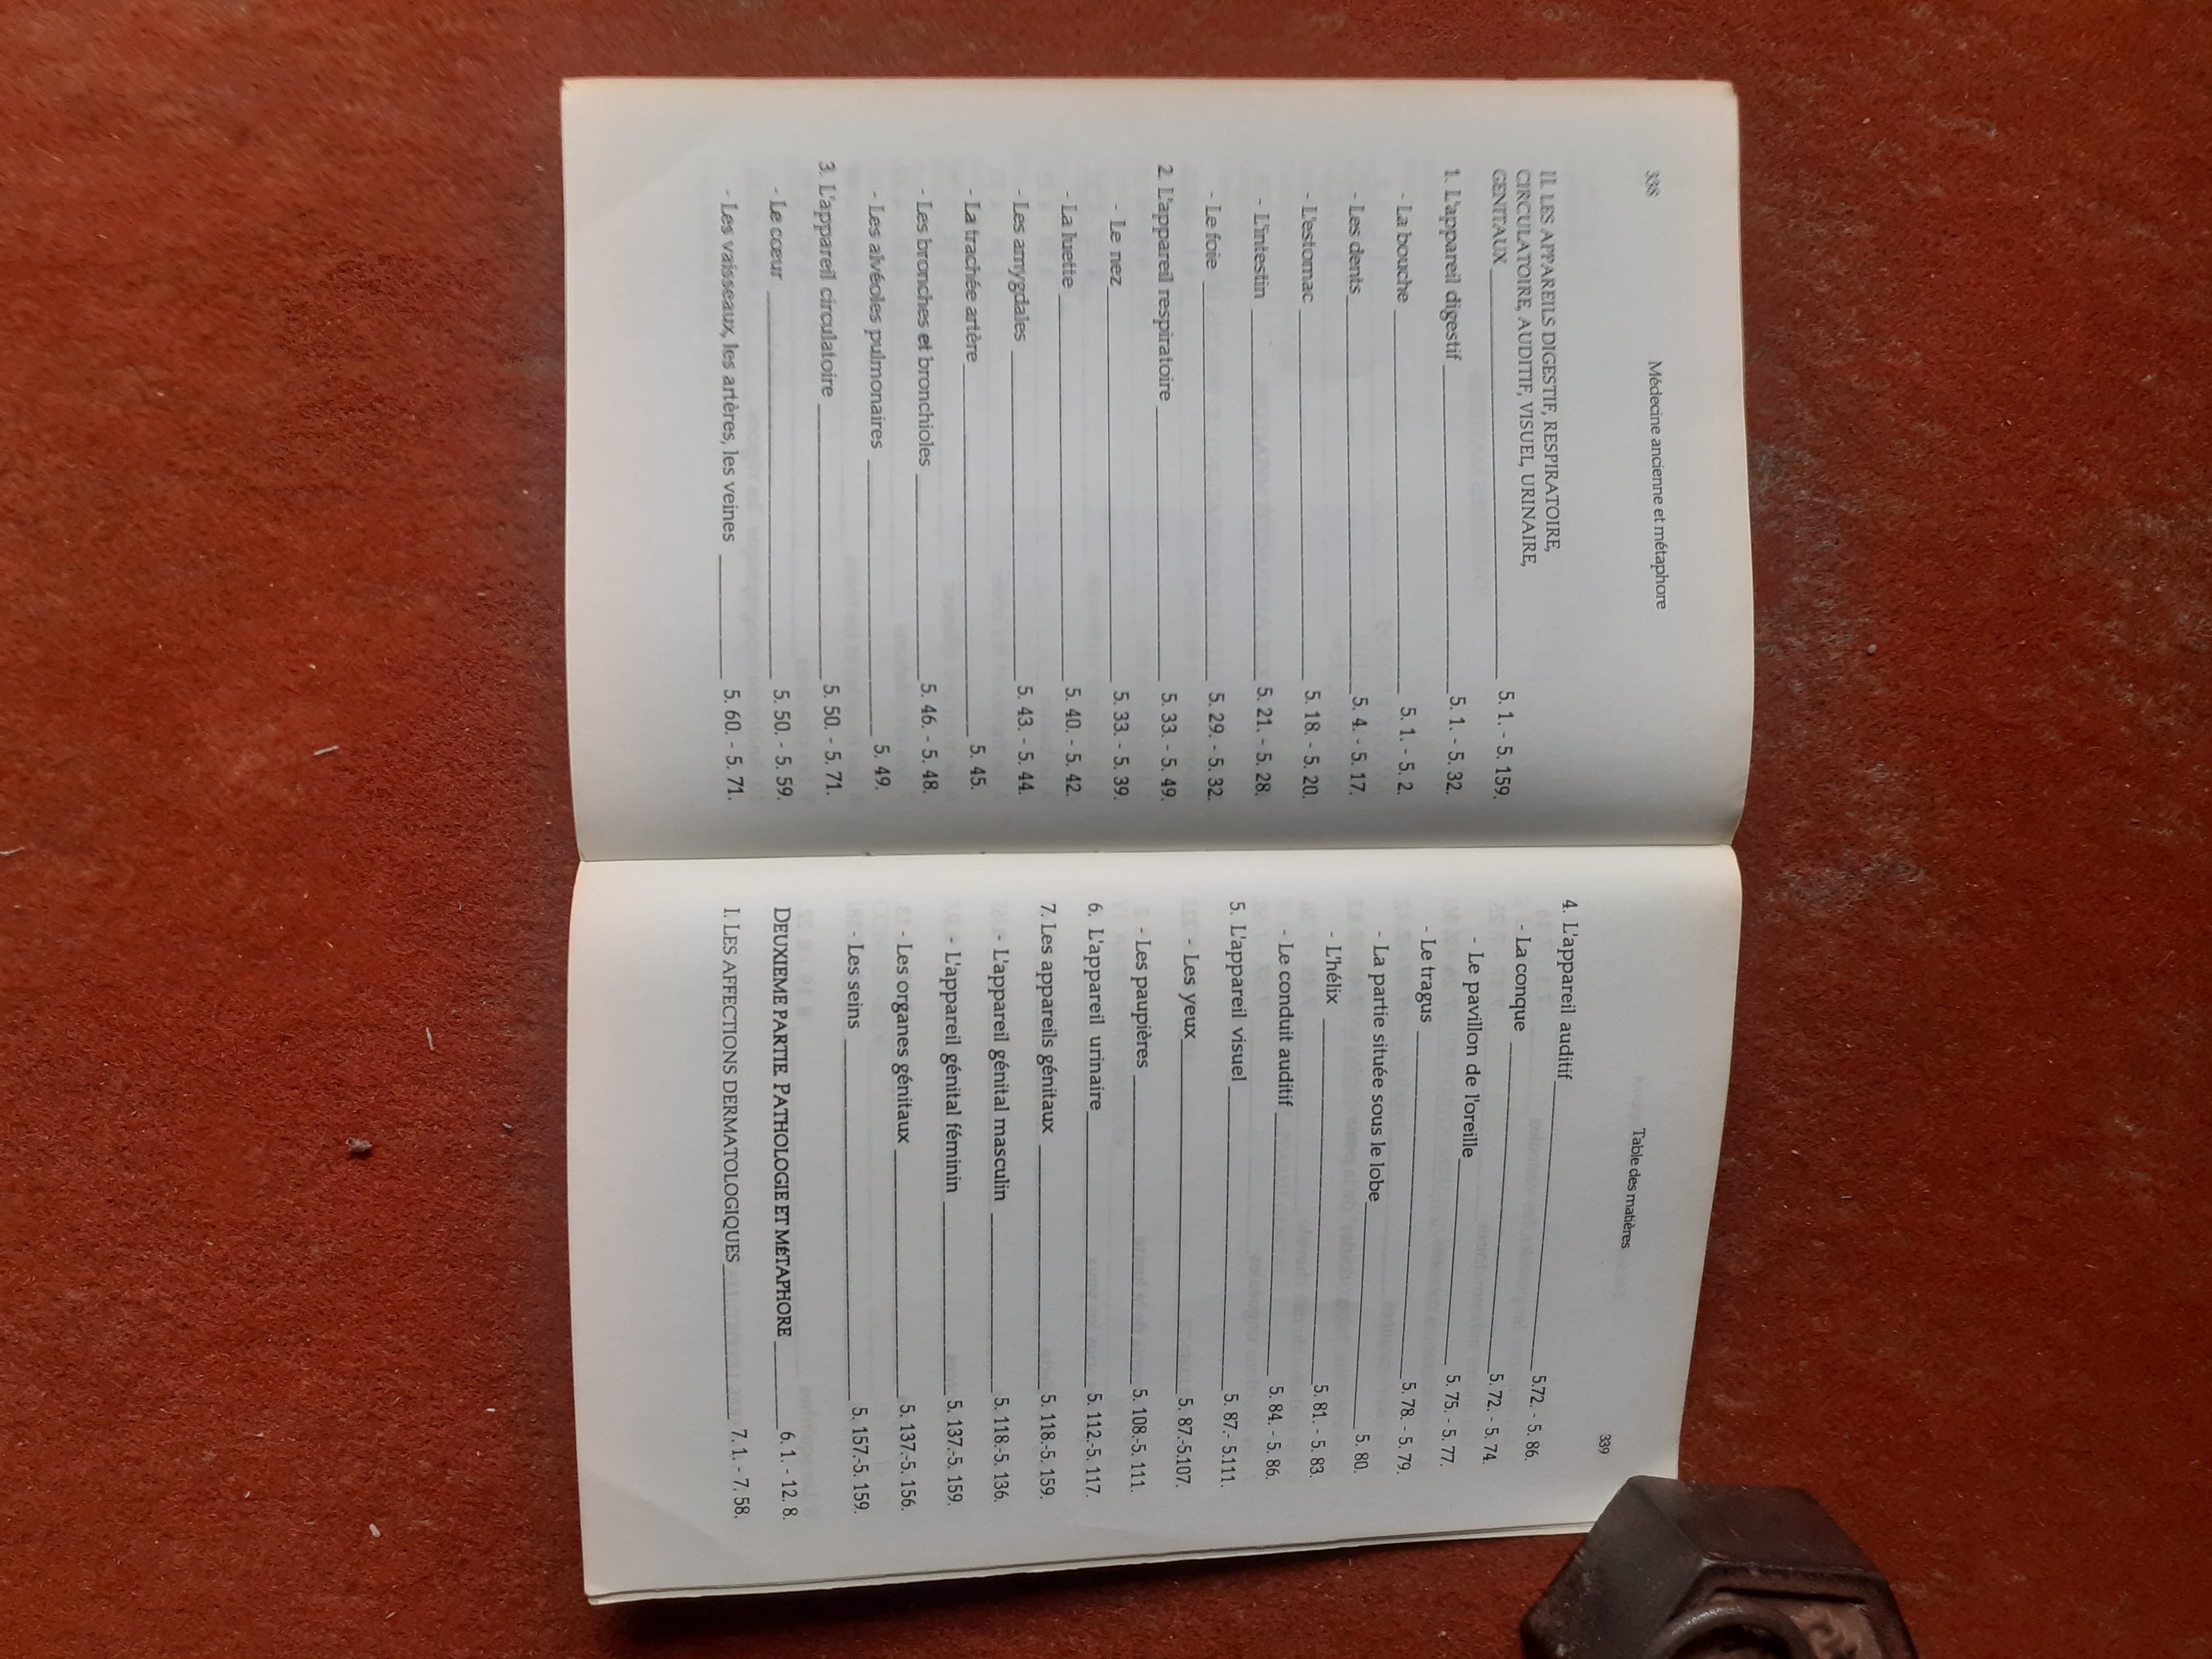 338
Médecine ancienne et métaphore
II. LES APPAREILS DIGESTIF, RESPIRATOIRE,
CIRCULATOIRE, AUDITIF, VISUEL, URINAIRE,
GENITAUX 5. 1. - 5. 159.
1. L'appareil digestif 5. 1. - 5. 32.
- La bouche 5. 1. - 5. 2.
- Les dents 5. 4. - 5. 17.
- L'estomac 5. 18. - 5. 20.
- L'intestin 5. 21. - 5. 28.
- Le foie 5. 29. - 5. 32.
2. L'appareil respiratoire 5. 33. - 5. 49.
- Le nez 5. 33. - 5. 39.
- La luette 5. 40. - 5. 42.
- Les amygdales 5. 43. - 5. 44.
- La trachée artère 5. 45.
- Les bronches et bronchioles 5. 46. - 5. 48.
- Les alvéoles pulmonaires 5. 49.
3. L'appareil circulatoire 5. 50. - 5. 71.
- Le cœur 5. 50. - 5. 59.
- Les vaisseaux, les artères, les veines 5. 60. - 5. 71.
Table des matières
339
4. L'appareil auditif 5.72. - 5. 86.
- La conque 5. 72. - 5. 74.
- Le pavillon de l'oreille 5. 75. - 5. 77.
- Le tragus 5. 78. - 5. 79.
- La partie située sous le lobe 5. 80.
- L'hélix 5. 81. - 5. 83.
- Le conduit auditif 5. 84. - 5. 86.
5. L'appareil visuel 5. 87.- 5.111.
- Les yeux 5. 87.-5.107.
- Les paupières 5. 108.-5. 111.
6. L'appareil urinaire 5. 112.-5. 117.
7. Les appareils génitaux 5. 118.-5. 159.
- L'appareil génital masculin 5. 118.-5. 136.
- L'appareil génital féminin 5. 137.-5. 159.
- Les organes génitaux 5. 137.-5. 156.
- Les seins 5. 157.-5. 159.
DEUXIEME PARTIE. PATHOLOGIE ET MÉTAPHORE 6. 1. - 12. 8.
I. LES AFFECTIONS DERMATOLOGIQUES 7. 1. - 7. 58.